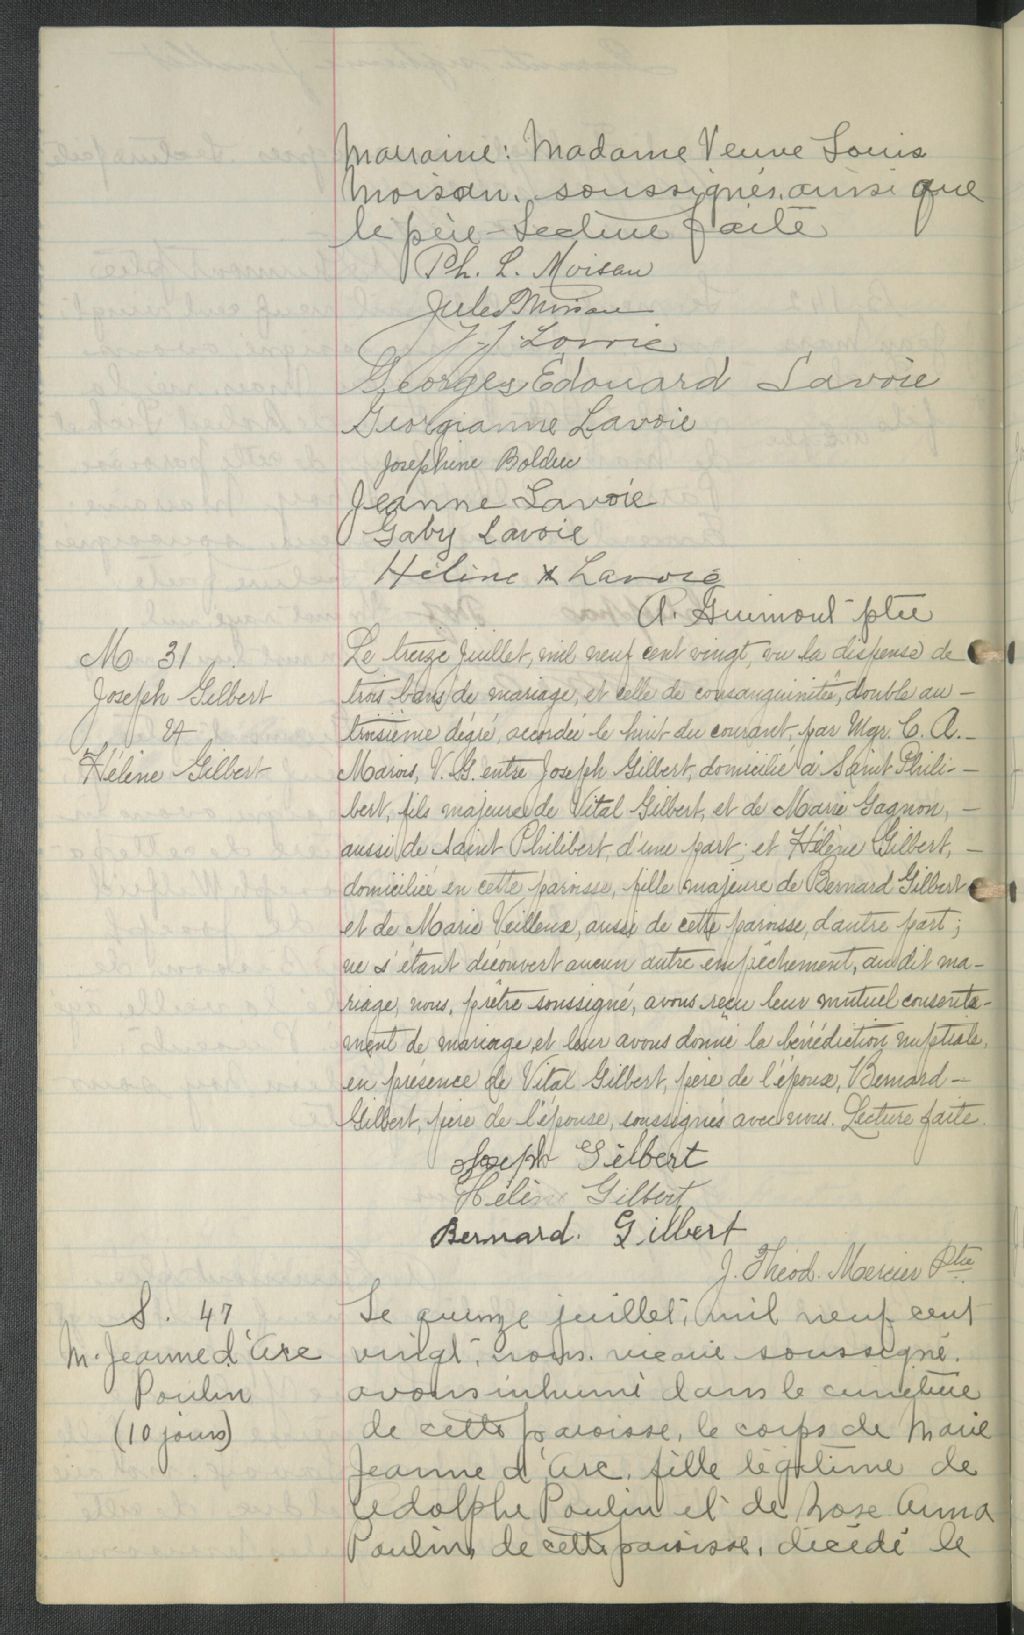 Marraine: Madame Veuve Louis
Moisan, soussignés, ainsi que
le père - Lecture faite
Ph. L. Moisan
Jules Moisan
J. Lavoie
Georges Edouard Lavoie
Georgianne Lavoie
Josephine Bolduc
Jeanne Lavoie
Gaby Lavoie
Hélène Lavoie
A. Guimont ptre
M 31
Joseph Gilbert
et
Hélène Gilbert
Le treize Juillet, mil neuf cent vingt, vu la dispense de
trois bans de mariage, et celle de consanguinité, double au -
troisième dégré, accordée le huit du courant, par Mgr. C. A. -
Marois, V. G. entre Joseph Gilbert, domicilié à Saint Phili- -
bert, fils majeure de Vital Gilbert, et de Marie Gagnon, -
aussi de Saint Philibert, d'une part; et Hélène Gilbert, -
domiciliée en cette paroisse, fille majeure de Bernard Gilbert
et de Marie Veilleux, aussi de cette paroisse, d'autre part;
ne s'étant découvert aucun autre empêchement, au dit ma-
riage, nous, prêtre soussigné, avons reçu leur mutuel consente-
ment de mariage et leur avons donné la bénédiction nuptiale,
en présence de Vital Gilbert, père de l'époux, Bernard -
Gilbert, père de l'épouse, soussignés avec nous. Lecture faite.
Joseph Gilbert
Hélène Gilbert
Bernard. Gilbert
J. Théod. Mercier Ptre
S. 47
M. Jeanne d'Arc
Poulin
(10 jours)
Le quinze juillet, mil neuf cent
vingt, nous, vicaire soussigné,
avons inhumé dans le cimetière
de cette paroisse, le corps de Marie
Jeanne d'Arc, fille légitime de
Adolphe Poulin et de Rose Anna
Poulin, de cette paroisse, décédé le